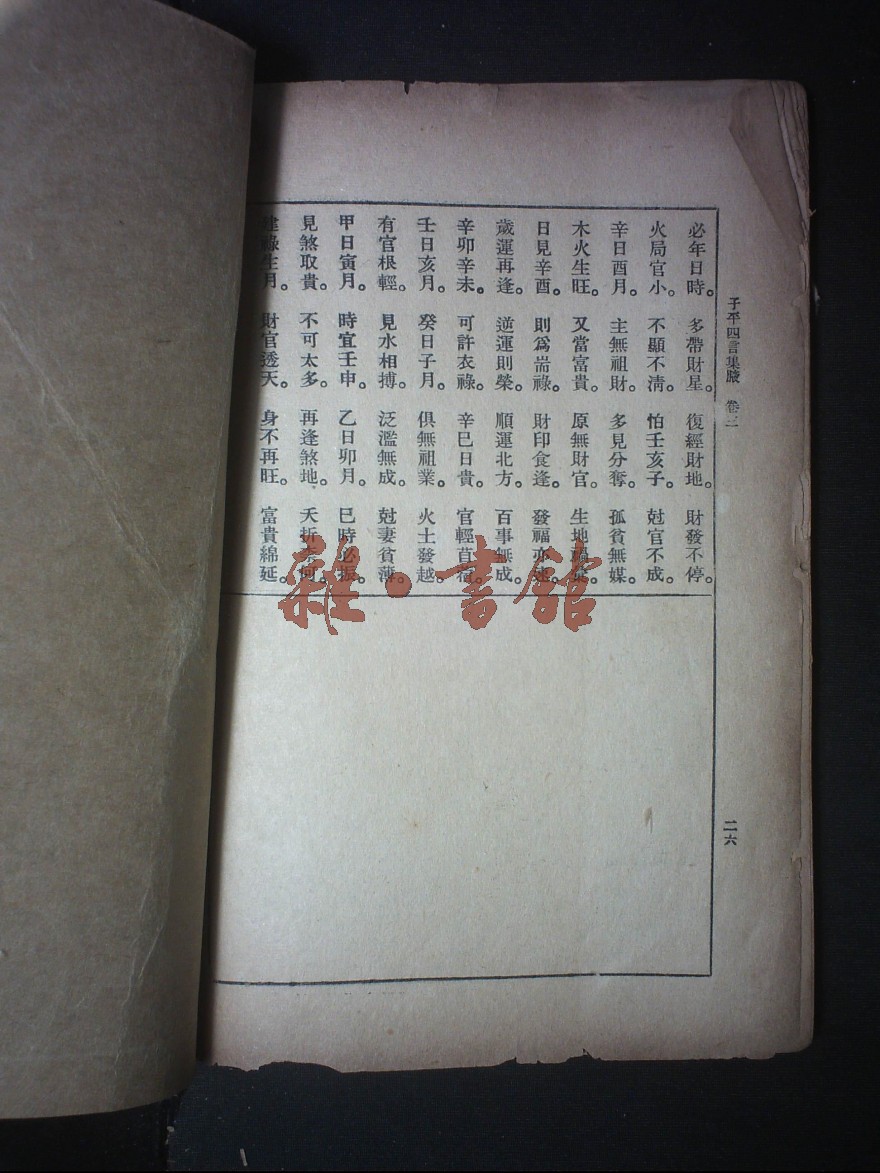 子平四言集腋　卷三
必年日時。多帶財星。復經財地。財發不停。
火局官小。不顯不清。怕壬亥子。尅官不成。
辛日酉月。主無祖財。多見分奪。孤貧無媒。
木火生旺。又當富貴。原無財官。生地
日見辛酉。則爲耑祿。財印食逢。發福亦
歲運再逢。逆運則榮。順運北方。百事無成。
辛卯辛未。可許衣祿。辛巳日貴。官輕苜蓿。
壬日亥月。癸日子月。俱無祖業。火土發越。
有官根輕。見水相搏。泛濫無成。尅妻貧薄。
甲日寅月。時宜壬申。乙日卯月。巳時必振。
見煞取貴。不可太多。再逢煞地。夭折
建祿生月。財官透天。身不再旺。富貴綿延。
二六
雜·書館